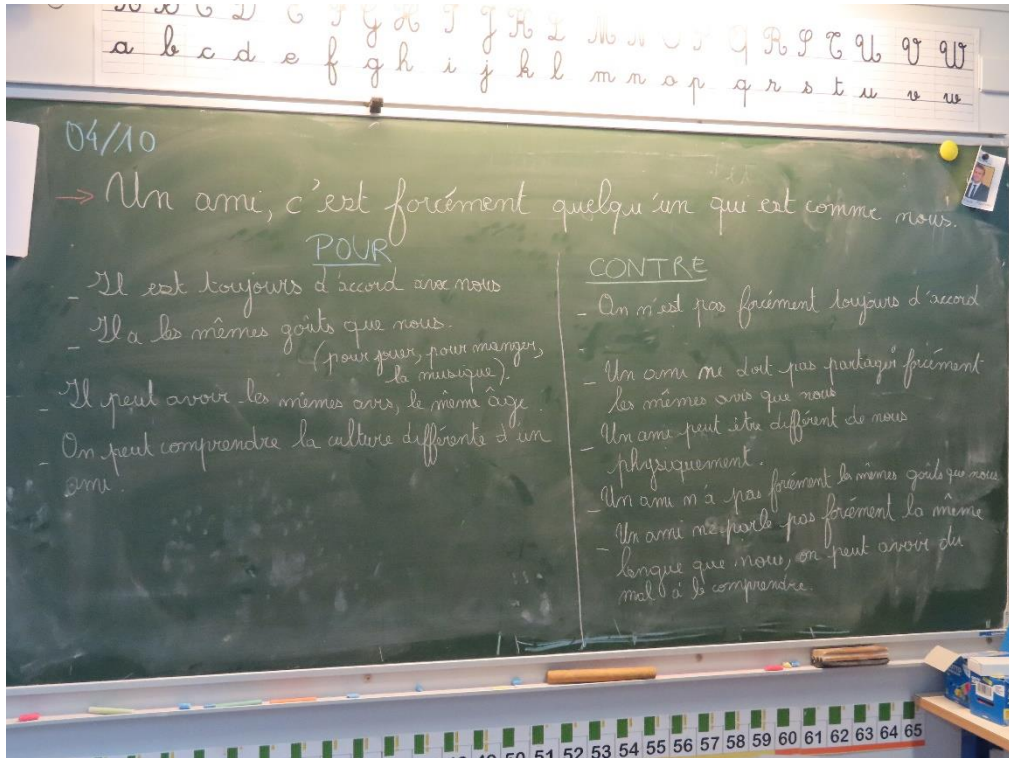 a b c d e f g h i j k l m n o p q r s t u v w
04/10
→ Un ami, c'est forcément quelqu'un qui est comme nous.
POUR
- Il est toujours d'accord avec nous
- Il a les mêmes goûts que nous.
(pour jouer, pour manger,
la musique).
- Il peut avoir les mêmes avis, le même âge.
- On peut comprendre la culture différente d'un
ami.
CONTRE
- On n'est pas forcément toujours d'accord
-
- Un ami ne doit pas partager forcément
les mêmes avis que nous
- Un ami peut être différent de nous
physiquement.
- Un ami n'a pas forcément les mêmes goûts que nous
- Un ami ne parle pas forcément la même
langue que nous, on peut avoir du
mal à le comprendre.
50 51 52 53 54 55 56 57 58 59 60 61 62 63 64 65